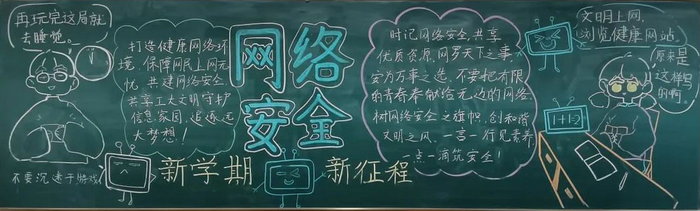 再玩完这局就
去睡觉。
不要沉迷于游戏
打造健康网络环
境 保障网民上网无
忧 共建网络安全
共享工大文明守护
信息家园，追逐远
大梦想！
网络
安全
新学期
新征程
时记网络安全，共享
优质资源，网罗天下之事，
安为万事之选，不要把有限
的青春奉献给无边的网络，
树网络安全之旗帜，创和谐
文明之风，一言一行见素养
一点一滴筑安全！
文明上网，
浏览健康网站。
原来是
这样写
的啊。
1+1=2